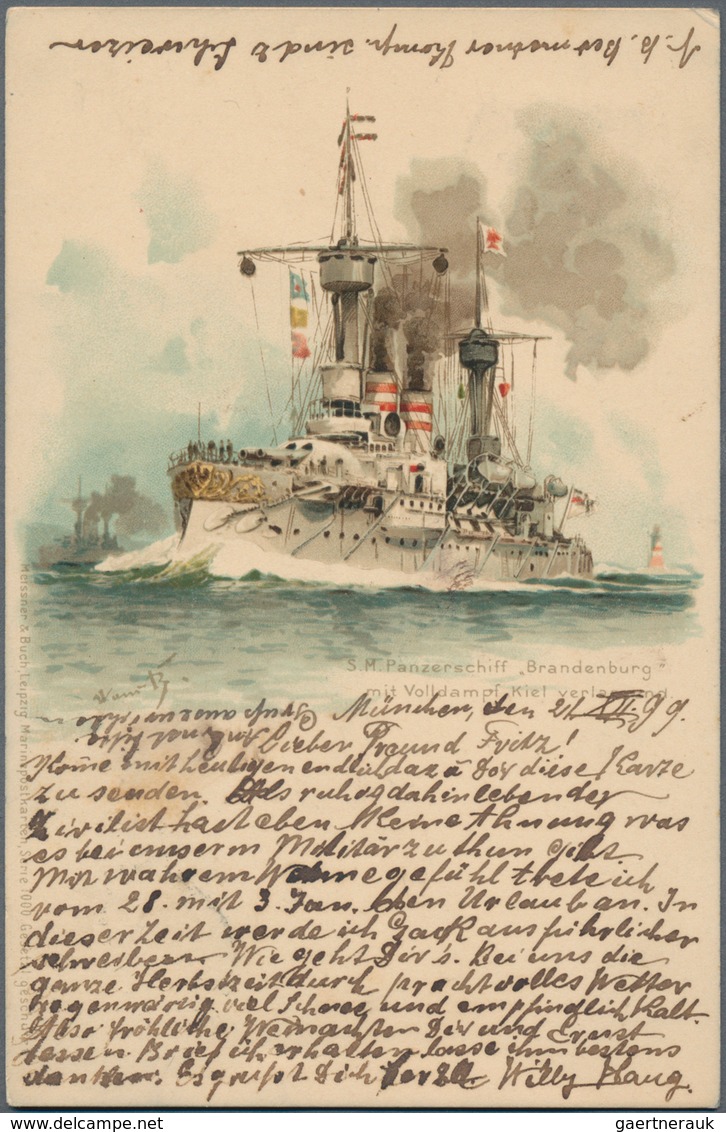 N.B. Bei meiner Komp. sind 2 Schweizer
S.M. Panzerschiff „Brandenburg”
mit Volldampf Kiel verlassend
München, den 21. XII. 99.
Lieber Freund Fritz!
Kome mit heutigem endlich dazu Dir diese Karte
zu senden. Als ruhig dahinlebender
Zivilist hast eben keine Ahnung was
es bei unserm Militär zu thun gibt.
Mit wahrem Wonnegefühl trete ich
vom 28. mit 3. Jan. den Urlaub an. In
dieser Zeit werde ich ausführlicher
schreiben. Wie geht Dir's. Bei uns die
ganze Herbstzeit durch prachtvolles Wetter
gegenwärtig viel Schnee und empfindlich kalt.
Also fröhliche Weinachten Dir und Ernst
dessen Brief ich erhalten lasse ihm bestens
danken. Es grüßt Dich herzl. Willy Haug.
Meissner & Buch, Leipzig Marinepostkarten, Serie 1000 Gesetzl. geschützt
gaertnerauk